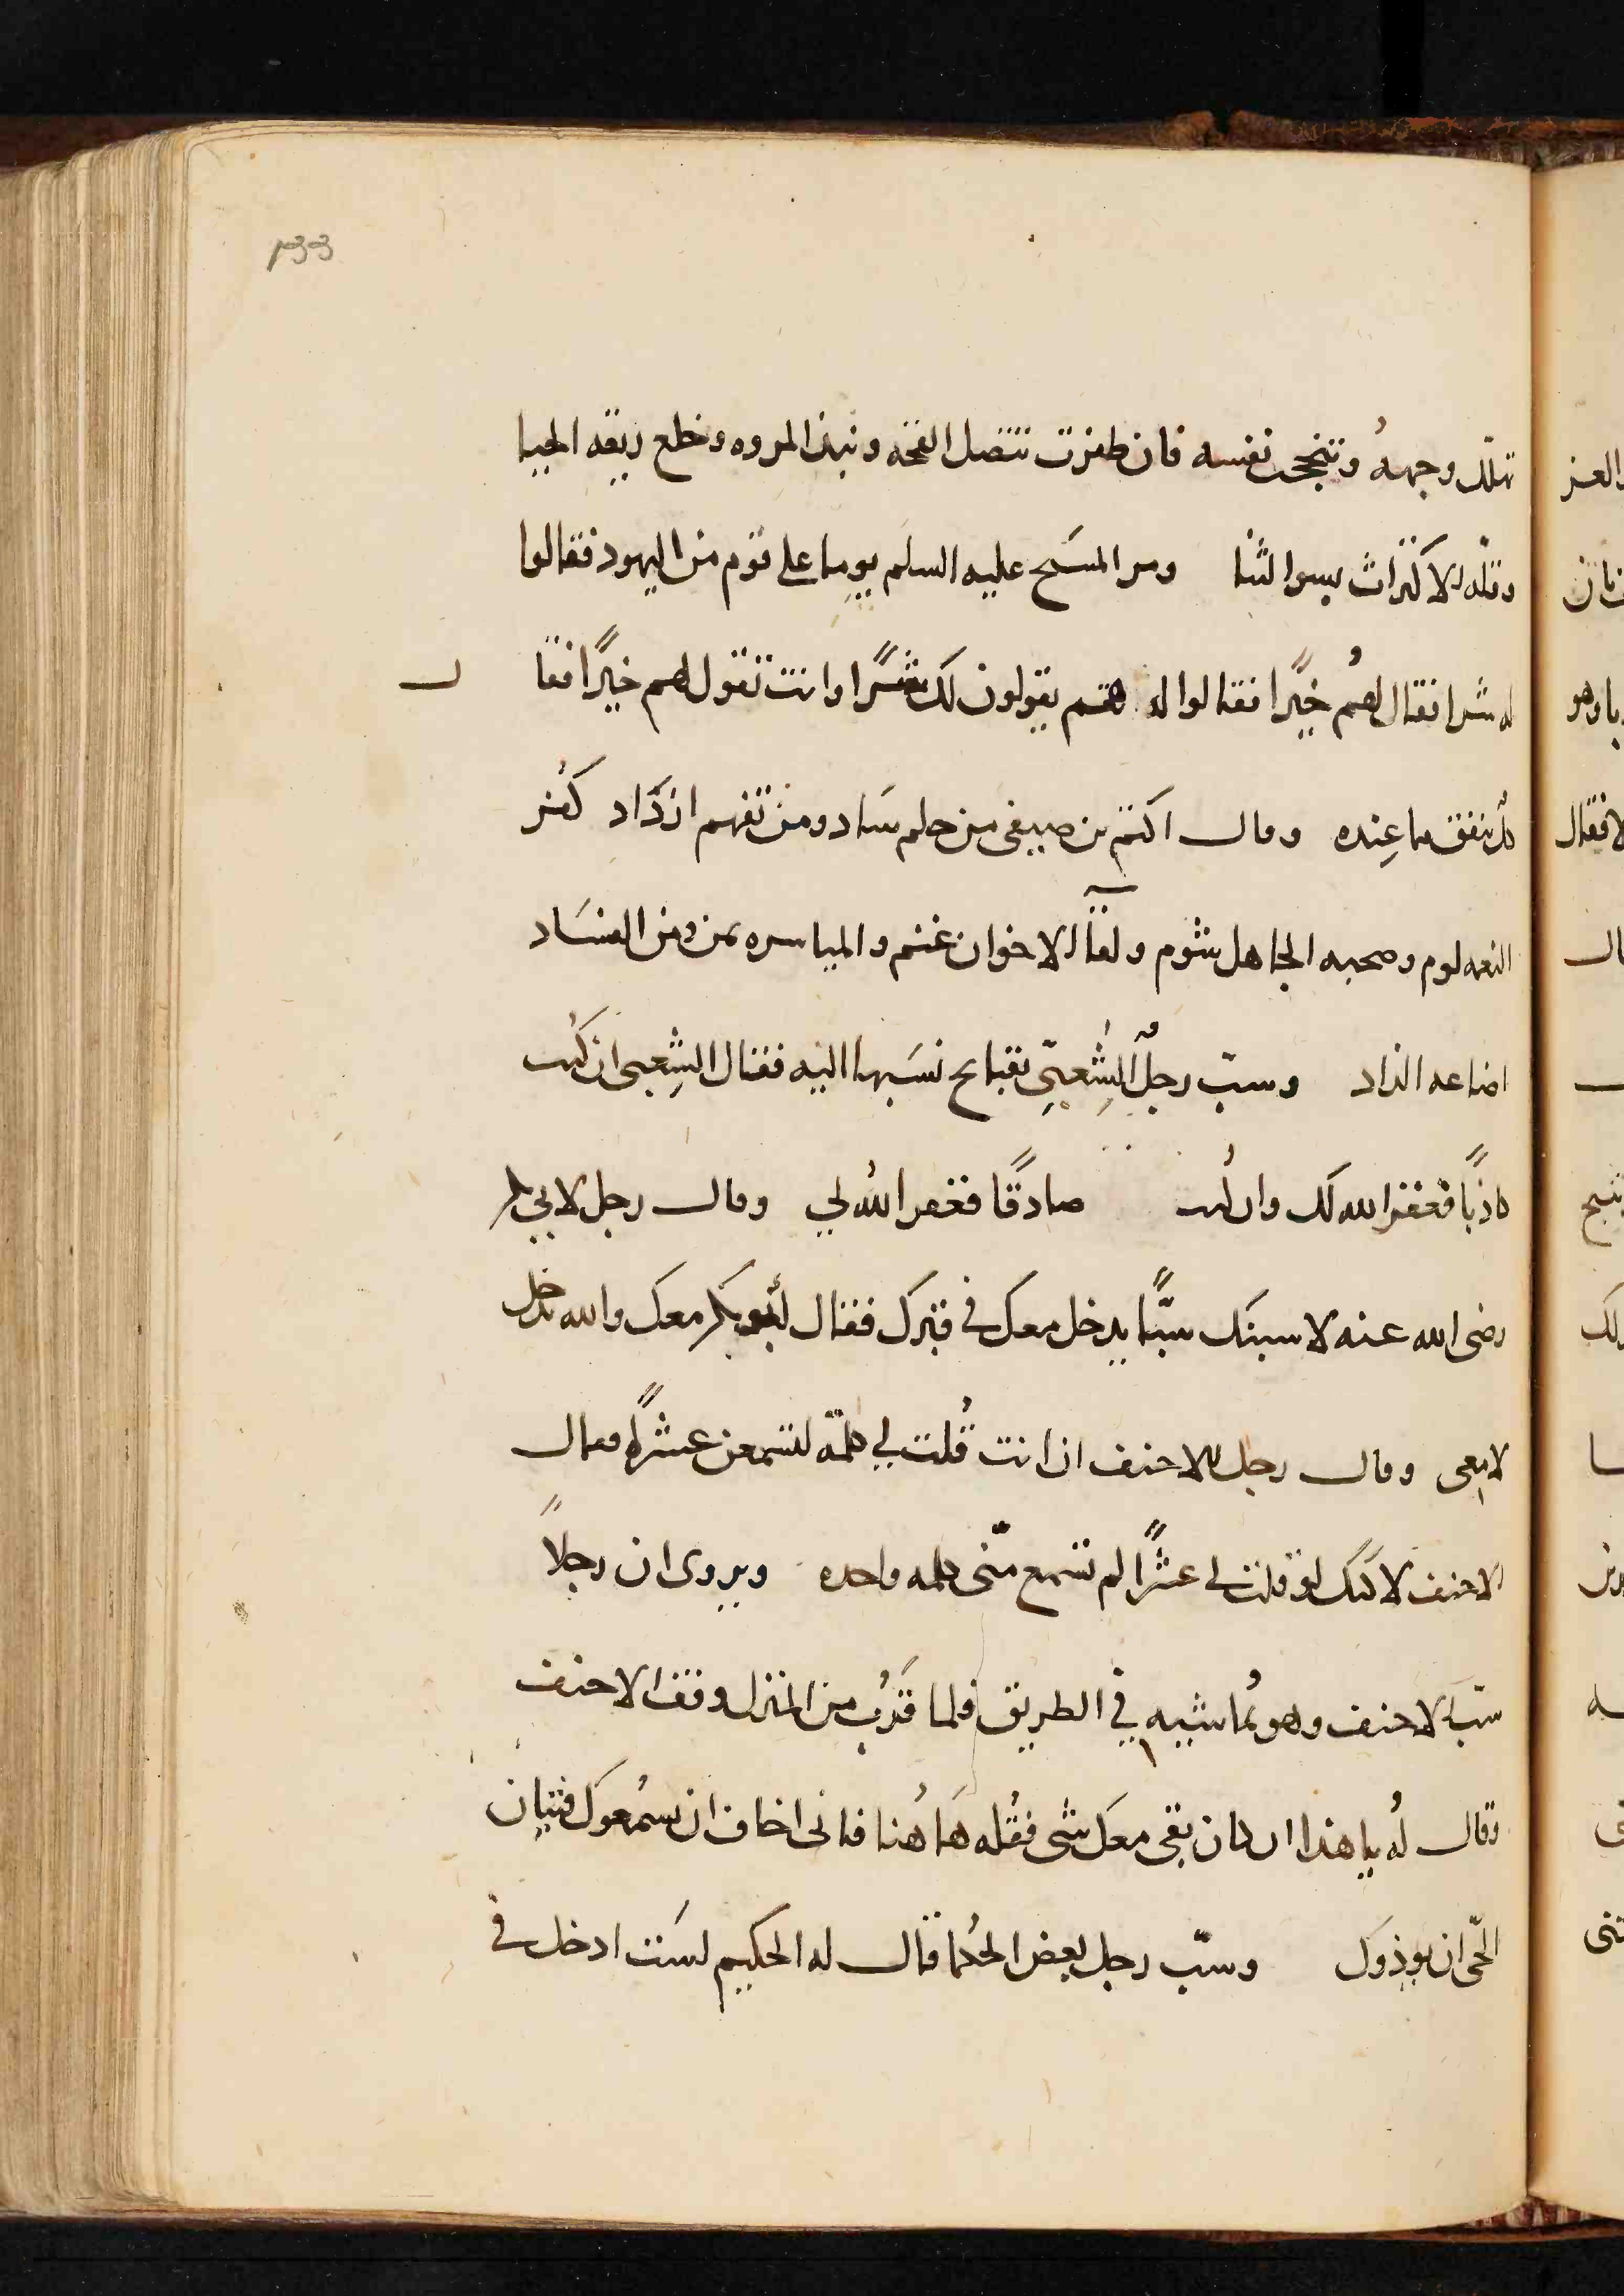 ١٣٣
تهلل وجهه وتنجحت نفسه فان ظفرت تتصل القحه ونبذ المروه وخلع ربقه الحيا
وقله الاكتراث بسوا لثنا ومر المسَيح عليه السلم يوما على قوم من اليهود فقالوا
له شرا فقال لهُم خيًرا فقالوا له هم يقولون لك شرًا وانت تقول لهم خيرًا فقال
كل ينفق مما عِنده وقال اكثم بن صيفى من حلم سَاد ومن تفهم ازدَاد كفر
النعمه لوم وصحبه الجاهل شوم ولقآ الاخوان غنم والمياسره يمن ومن الفسَاد
اضاعه الزاد وسبّ رجلٌ الشِعبيّ بقبايح نسَبها اليه فقال الشِعبى ان كنت
كاذبًا فغفر الله لك وان كنت صادقًا فغفر اللهُ لي وقال رجل لابي بكر
رضى الله عنه لا سبنك سبًّا يدخل معك في قبرك فقال أبو بكر معك والله يدخل
لا معى وقال رجل للاحنف ان انت قُلت لي كلمة لتسمعن عشرًا فقال
الاحنف لاكنك لو قلت لى عشرًا لم تسمع منّى كلمه واحده ويروى ان رجلاً
سبّ الاحنف وهو يُماشيه في الطريق فلما قَرُب من المنزل وقف الاحنف
وقال لهُ يا هذا ان كان بقى معك شى فقُله هَاهُنا فانى اخاف ان يسمُعوك فتيان
الحّى ان يوذوك وسبّ رجل بعض الحُكما فقال له الحكيم لسَت ادخل في